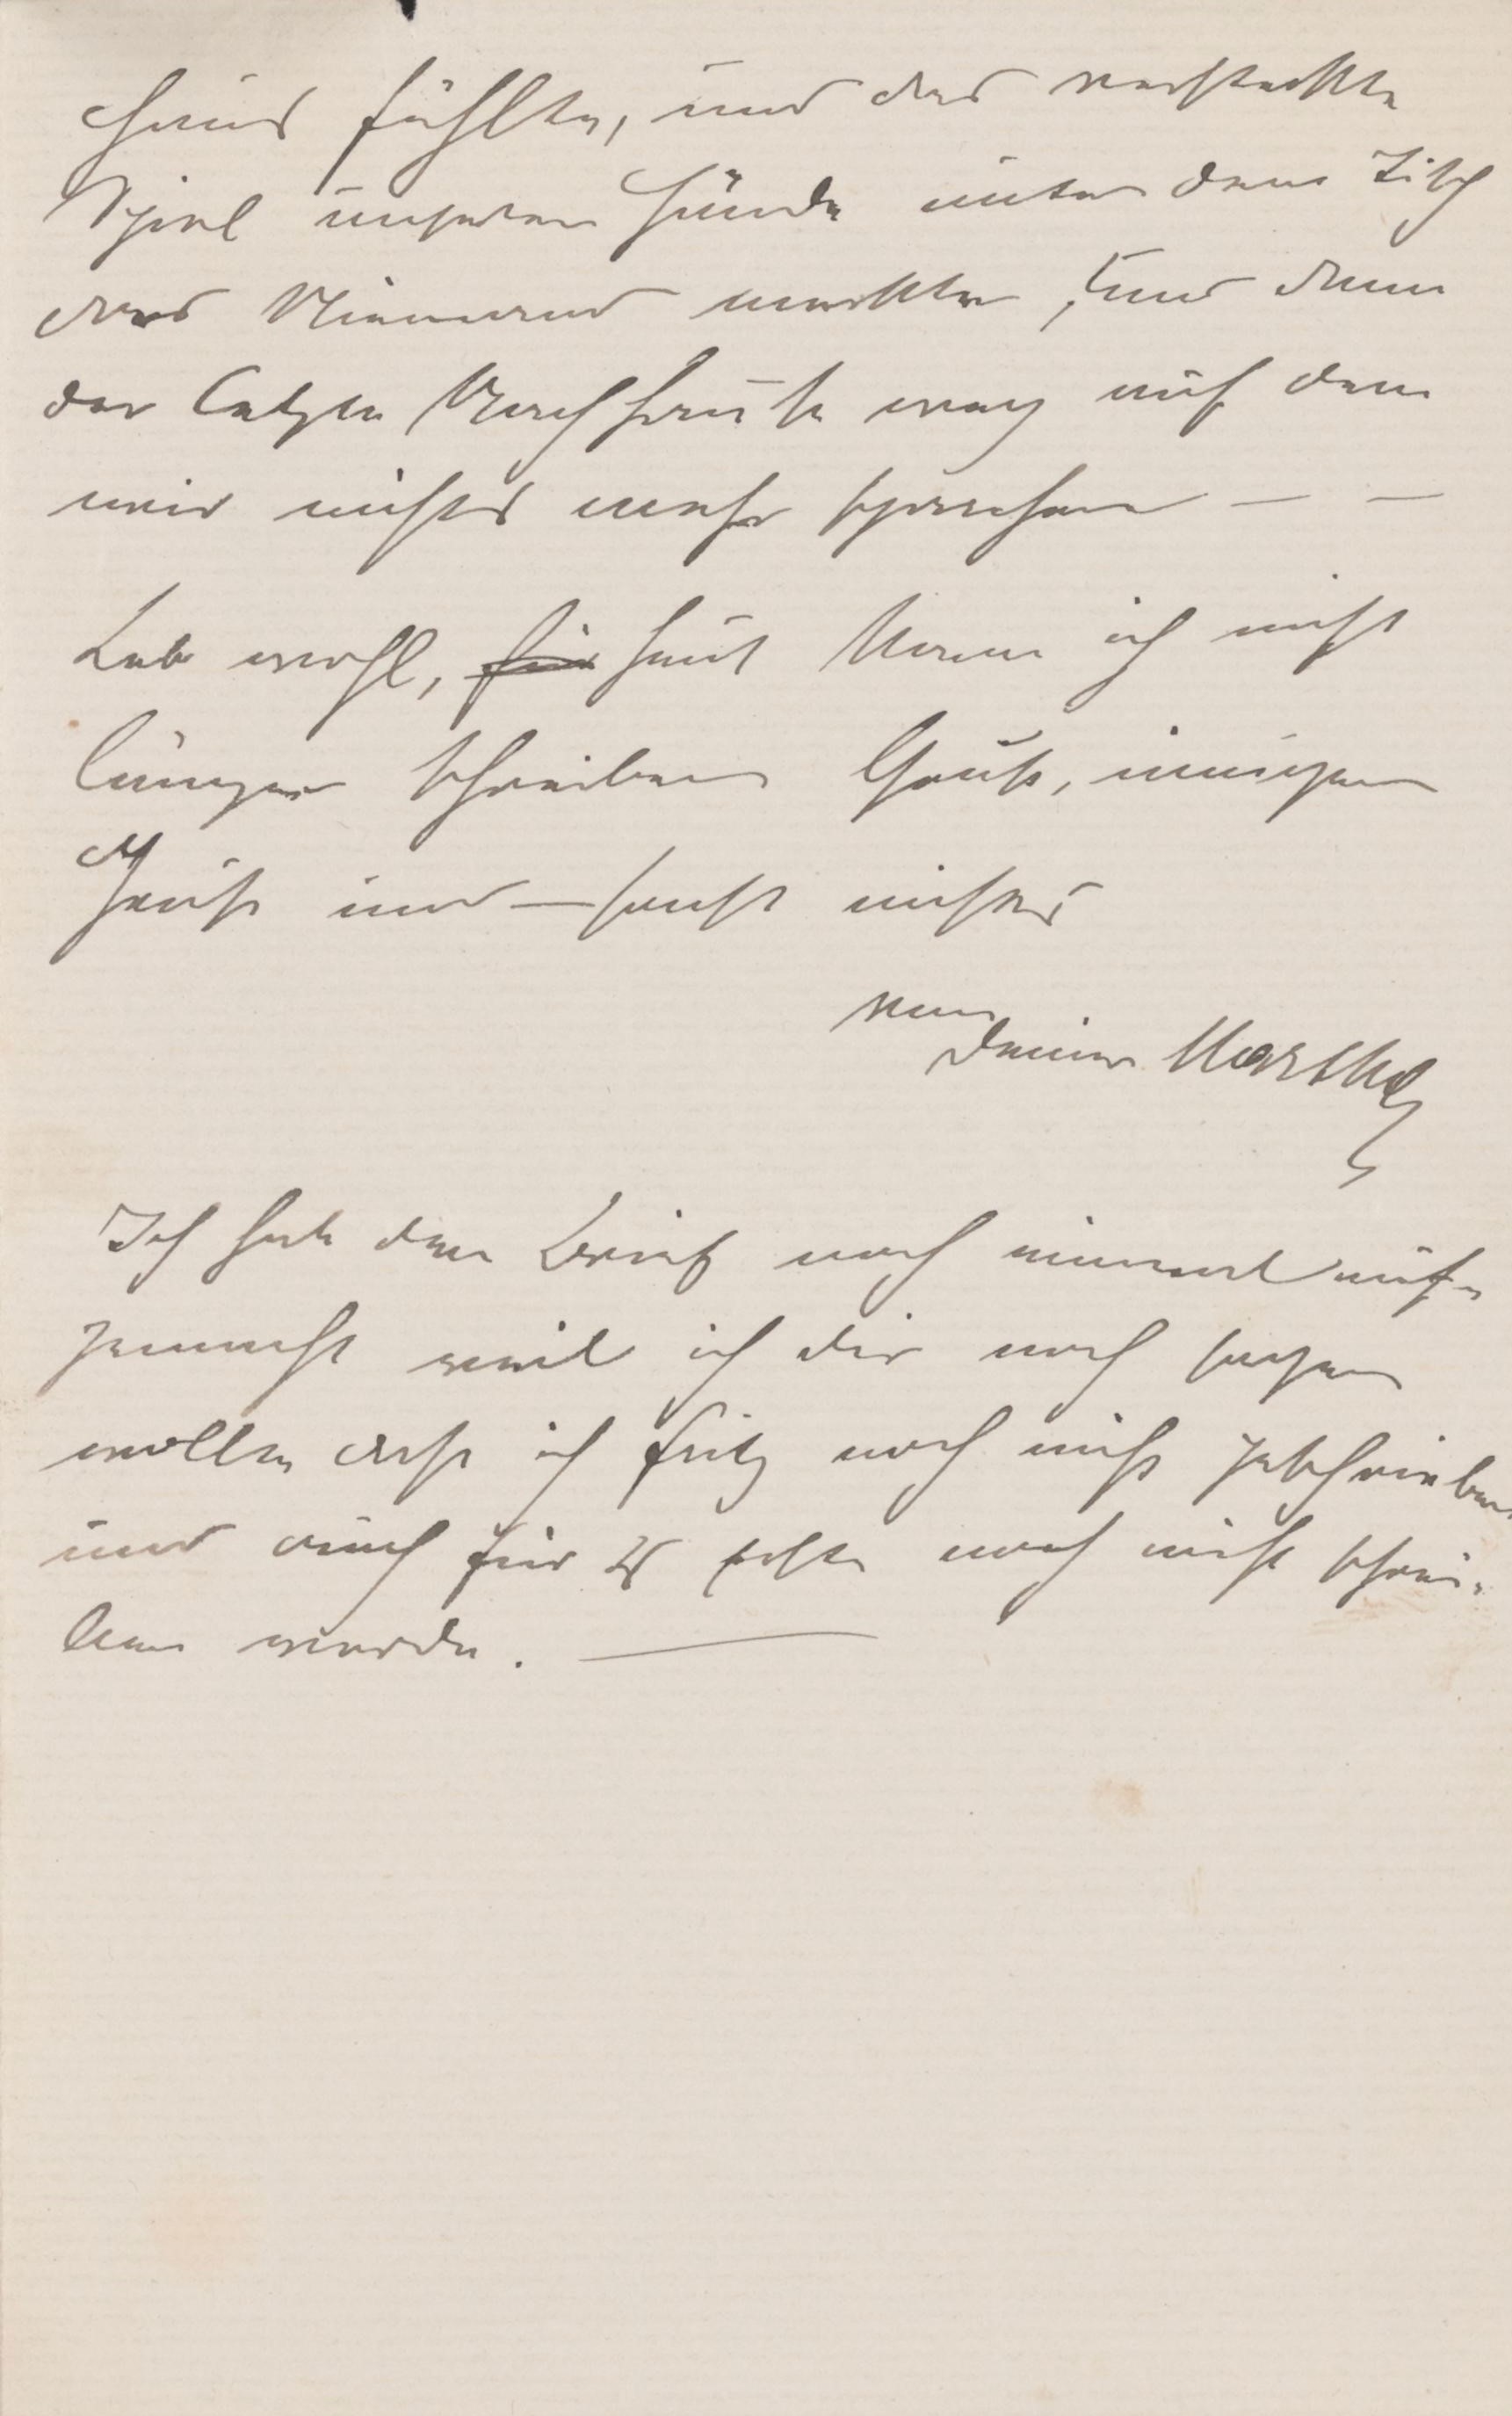 Haus fühlte, und das versteckte
Spiel unserer Hände unter dem Tisch
das Niemand merkte, und dann
der letzte Nachhauseweg auf dem
wir nichts mehr sprachen – –
Leb wohl, heut kann ich nicht
länger schreiben Gruß, innigen
Gruß und – sonst nichts
von
Deiner Martha
Ich hab den Brief noch einmal auf-
gemacht weil ich dir noch sagen
wollte daß ich Fritz noch nicht geschrieben
und auch fürs erste noch nicht schrei-
ben werde. —